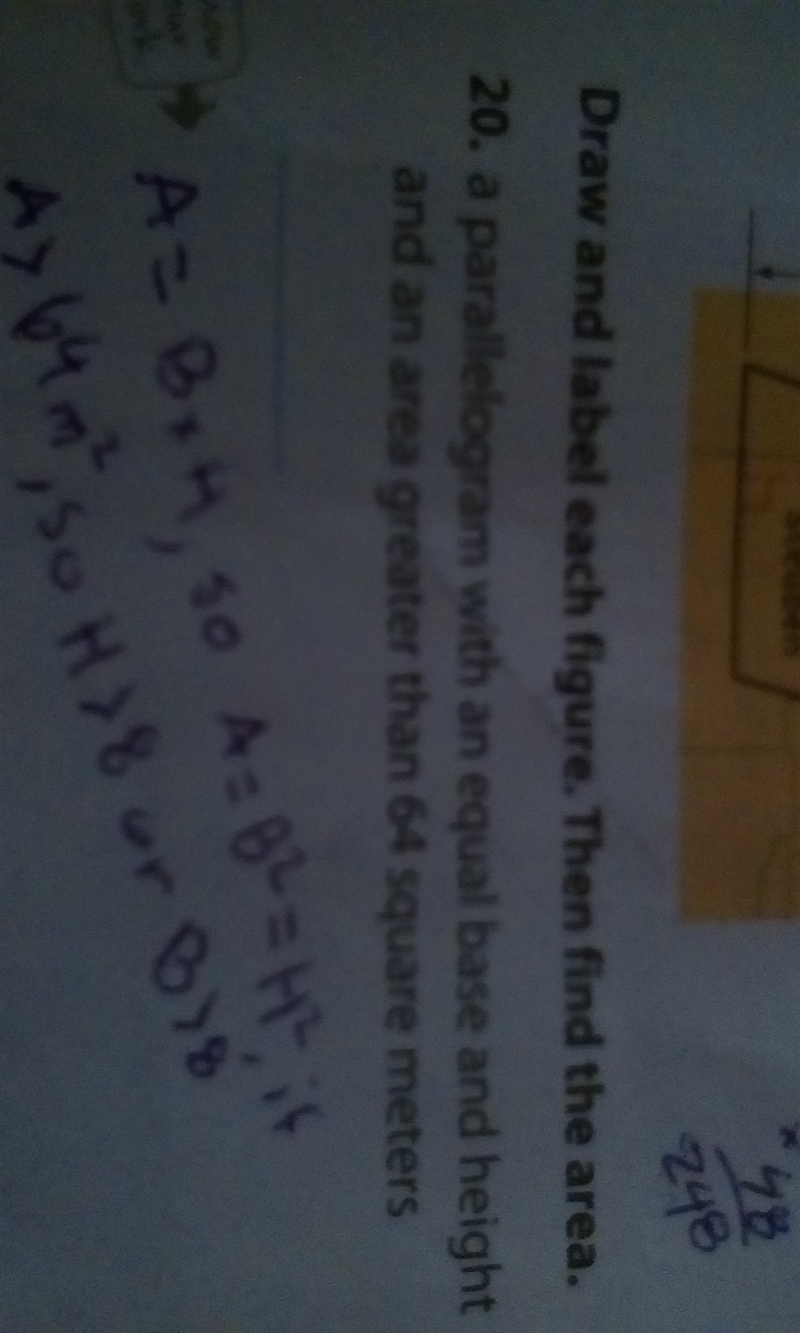 48
248
Draw and label each figure. Then find the area.
20. a parallelogram with an equal base and height
and an area greater than 64 square meters
A = B × H, so A = B² = H², if
A > 64 m², so H > 8 or B > 8